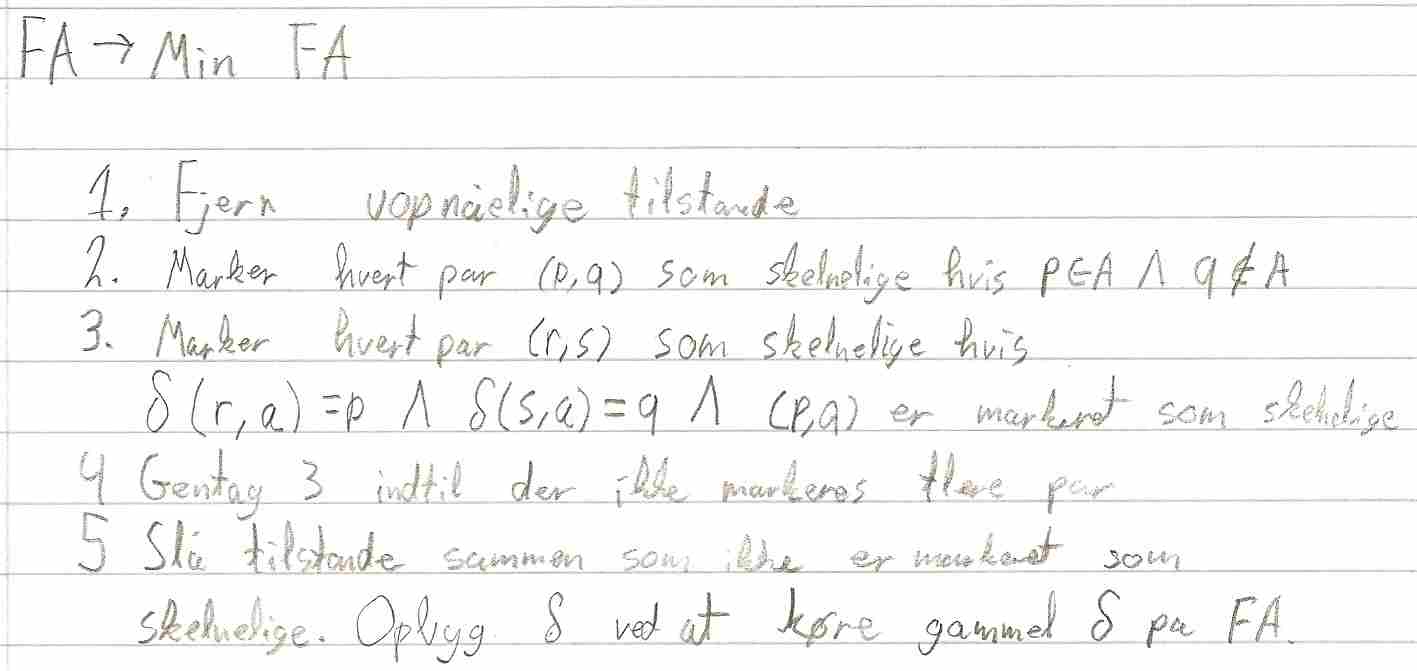 FA → Min FA
1. Fjern uopnåelige tilstande
2. Marker hvert par (p,q) som skelnelige hvis p∈A ∧ q∉A
3. Marker hvert par (r,s) som skelnelige hvis
δ(r,a)=p ∧ δ(s,a)=q ∧ (p,q) er markeret som skelnelige
4 Gentag 3 indtil der ikke markeres flere par
5 Slå tilstande sammen som ikke er markeret som
skelnelige. Opbyg δ ved at køre gammel δ på FA.